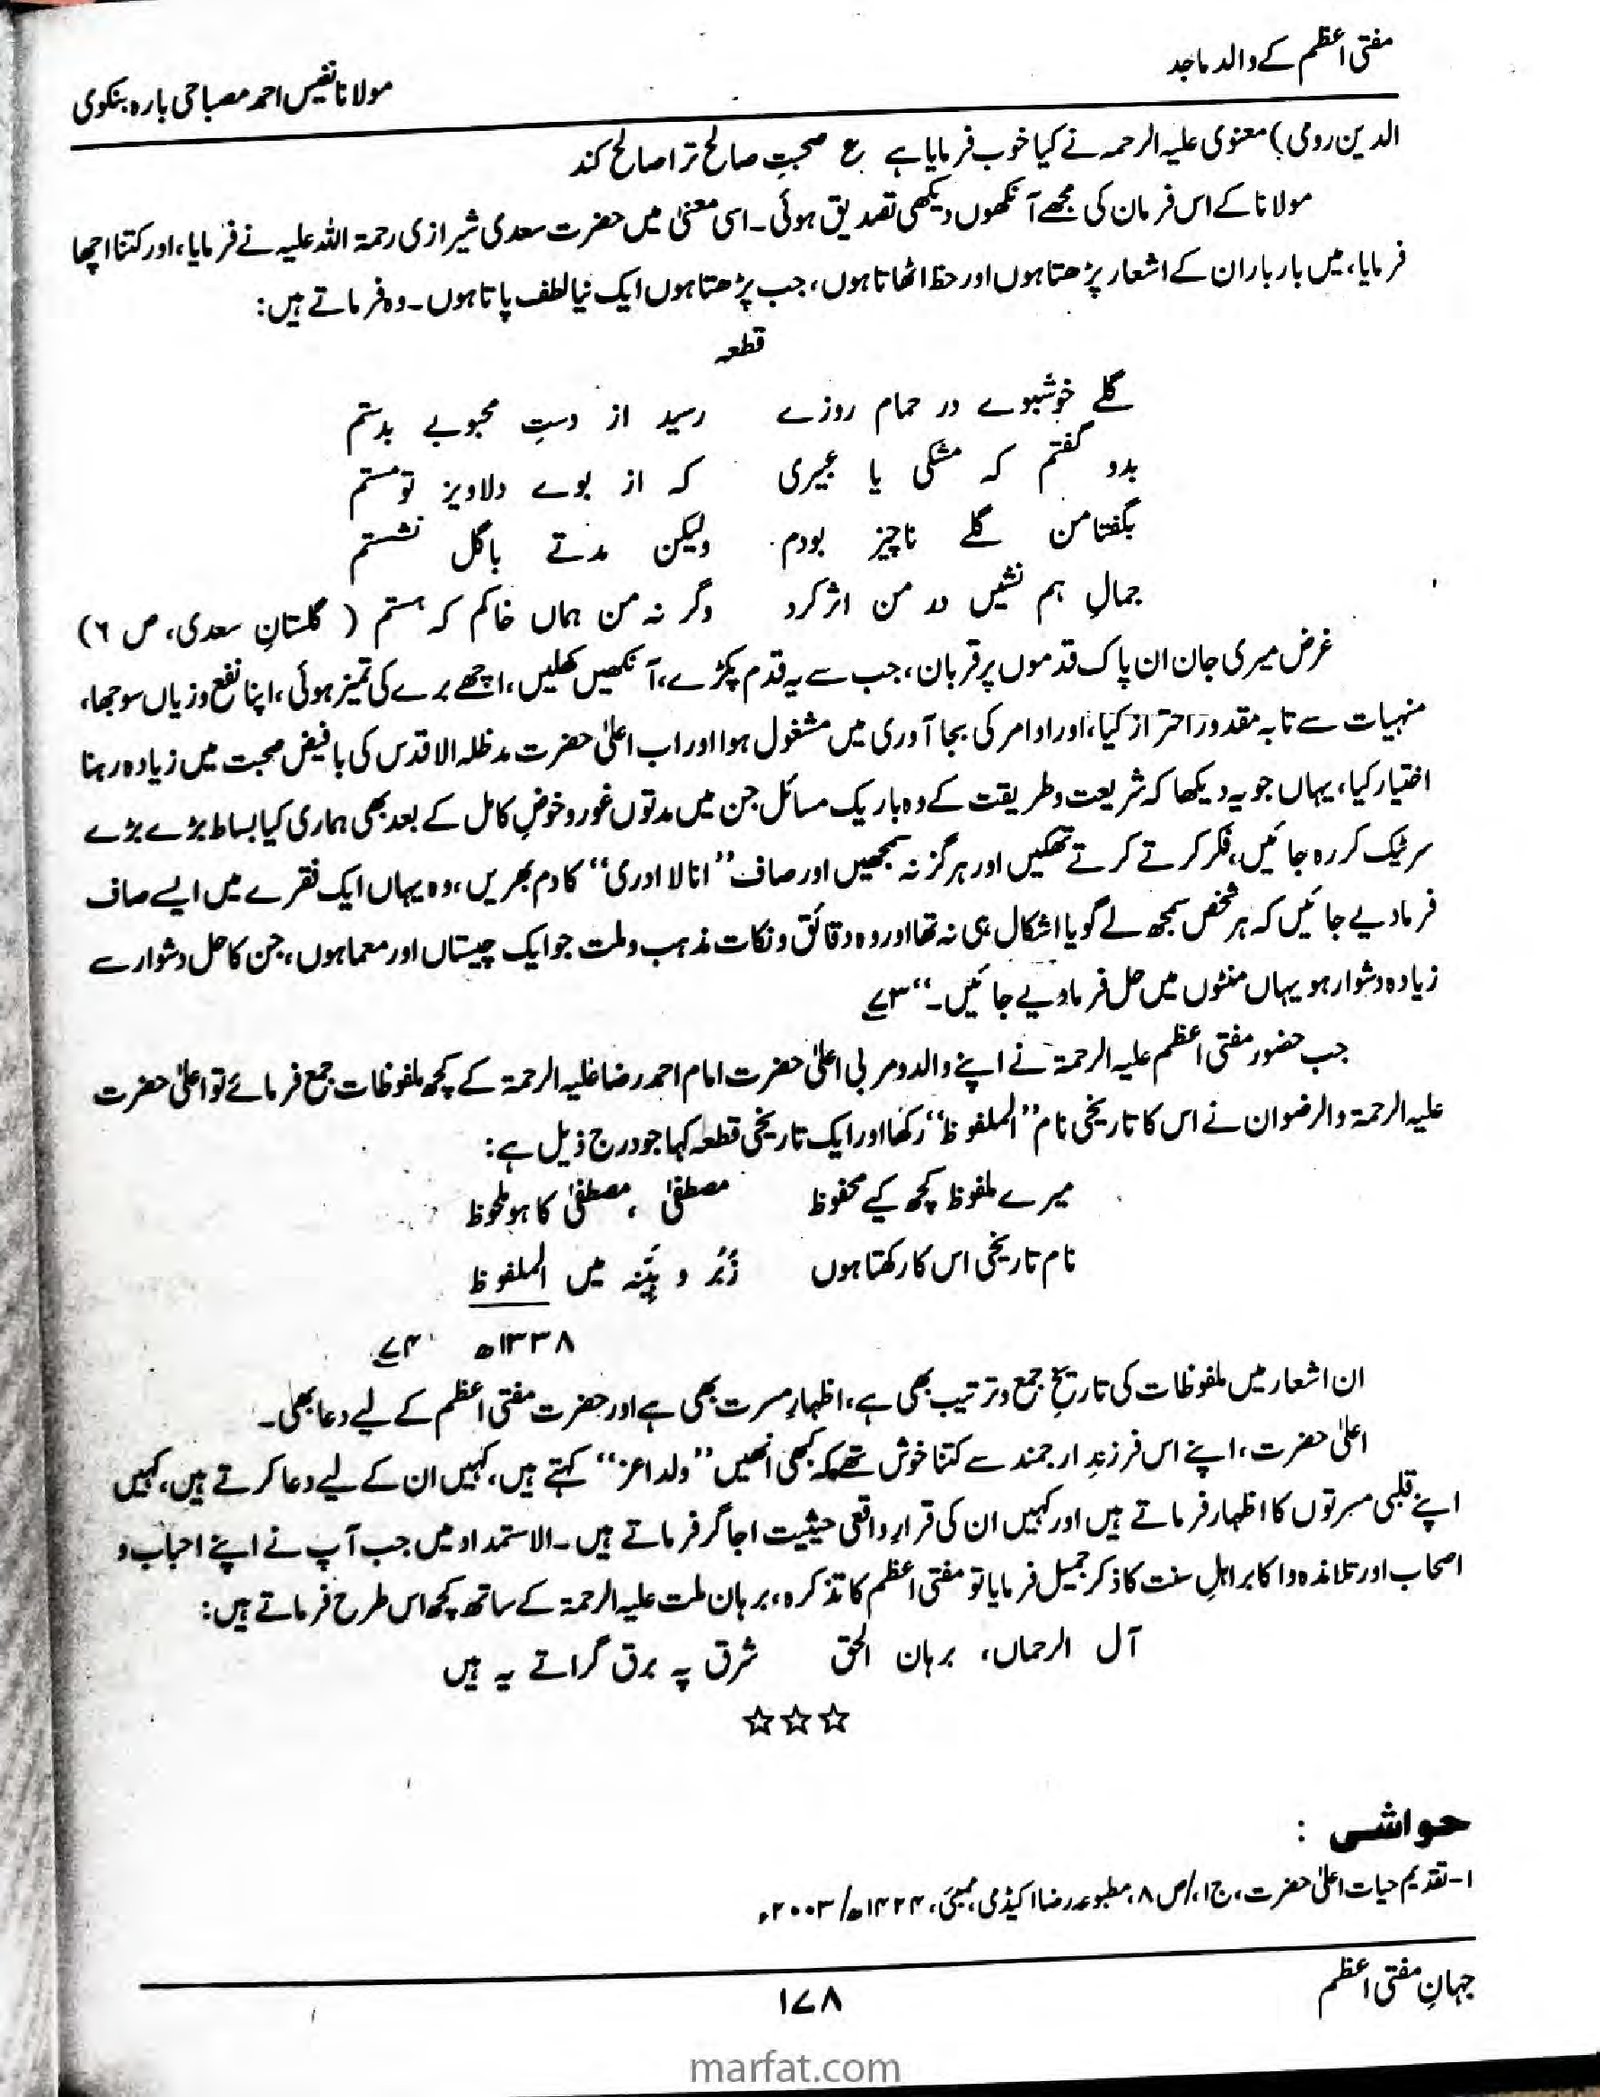 مفتی اعظم کے والد ماجد
مولانا نفیس احمد مصباحی بارہ بنکوی
الدین رومی) معنوی علیہ الرحمہ نے کیا خوب فرمایا ہے ع صحبتِ صالح ترا صالح کند
مولانا کے اس فرمان کی مجھے آنکھوں دیکھی تصدیق ہوئی۔ اسی معنیٰ میں حضرت سعدی شیرازی رحمۃ اللہ علیہ نے فرمایا، اور کتنا اچھا
فرمایا، میں بار بار ان کے اشعار پڑھتا ہوں اور حظ اٹھاتا ہوں، جب پڑھتا ہوں ایک نیا لطف پاتا ہوں۔ وہ فرماتے ہیں:
قطعہ
گلے خوشبوے در حمام روزے رسید از دستِ محبوبے بدستم
بدو گفتم کہ مشکی یا عبیری کہ از بوے دلاویز تو مستم
بگفتا من گلے ناچیز بودم ولیکن مدتے باگل نشستم
جمالِ ہم نشیں در من اثر کرد وگر نہ من ہماں خاکم کہ ہستم (گلستانِ سعدی، ص ٦)
غرض میری جان ان پاک قدموں پر قربان، جب سے یہ قدم پکڑے، آنکھیں کھلیں، اچھے برے کی تمیز ہوئی، اپنا نفع و زیاں سوجھا،
منہیات سے تا بہ مقدور احتراز کیا، اور اوامر کی بجا آوری میں مشغول ہوا اور اب اعلیٰ حضرت مدظلہ الاقدس کی بافیض صحبت میں زیادہ رہنا
اختیار کیا، یہاں جو یہ دیکھا کہ شریعت و طریقت کے وہ باریک مسائل جن میں مدتوں غور و خوضِ کامل کے بعد بھی ہماری کیا بساط بڑے بڑے
سر ٹیک کر رہ جائیں، فکر کرتے کرتے تھکیں اور ہرگز نہ سمجھیں اور صاف ’’انا لا ادری‘‘ کا دم بھریں، وہ یہاں ایک فقرے میں ایسے صاف
فرما دیے جائیں کہ ہر شخص سمجھ لے گویا اشکال ہی نہ تھا اور وہ دقائق و نکات مذہب و ملت جو ایک چیستاں اور معما ہوں، جن کا حل دشوار سے
زیادہ دشوار ہو یہاں منٹوں میں حل فرما دیے جائیں۔‘‘ ۳؎
جب حضور مفتی اعظم علیہ الرحمۃ نے اپنے والد و مربی اعلیٰ حضرت امام احمد رضا علیہ الرحمۃ کے کچھ ملفوظات جمع فرمائے تو اعلیٰ حضرت
علیہ الرحمۃ والرضوان نے اس کا تاریخی نام ’’الملفوظ‘‘ رکھا اور ایک تاریخی قطعہ کہا جو درج ذیل ہے:
میرے ملفوظ کچھ کیے محفوظ مصطفیٰ، مصطفیٰ کا ہو ملحوظ
نام تاریخی اس کا رکھتا ہوں زُبُر و بیِّنہ میں الملفوظ
۱۳۳۸ھ ۴؎
ان اشعار میں ملفوظات کی تاریخِ جمع و ترتیب بھی ہے، اظہارِ مسرت بھی ہے اور حضرت مفتی اعظم کے لیے دعا بھی۔
اعلیٰ حضرت، اپنے اس فرزندِ ارجمند سے کتنا خوش تھے کہ کبھی انھیں ’’ولد اعز‘‘ کہتے ہیں، کہیں ان کے لیے دعا کرتے ہیں، کہیں
اپنے قلبی مسرتوں کا اظہار فرماتے ہیں اور کہیں ان کی قرار واقعی حیثیت اجاگر فرماتے ہیں۔ الاستمداد میں جب آپ نے اپنے احباب و
اصحاب اور تلامذہ و اکابر اہلِ سنت کا ذکر جمیل فرمایا تو مفتی اعظم کا تذکرہ، برہان ملت علیہ الرحمۃ کے ساتھ کچھ اس طرح فرماتے ہیں:
آل الرحماں، برہان الحق شرق پہ برق گراتے یہ ہیں
☆☆☆
حواشی :
۱- تقدیم حیات اعلیٰ حضرت، ج۱،/ص ۸، مطبوعہ رضا اکیڈمی، ممبئی، ۱۴۲۴ھ/۲۰۰۳ء
جہانِ مفتی اعظم
۱۷۸
marfat.com